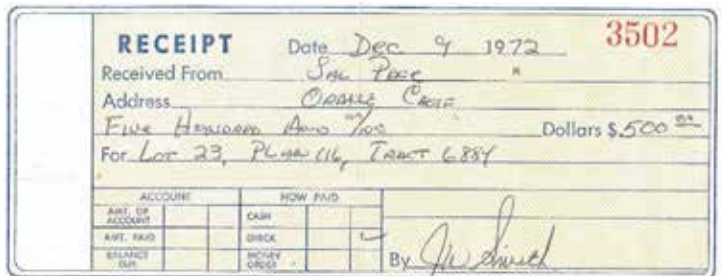 RECEIPT Date Dec 9 1972 3502
Received From Sal
Address Orange
Five Hundred And no/100 Dollars $ 500 no
For Lot 23, Plan 116, Tract 6884
ACCOUNT HOW PAID
AMT. OF ACCOUNT CASH
AMT. PAID CHECK
BALANCE DUE MONEY ORDER
By JW Smith